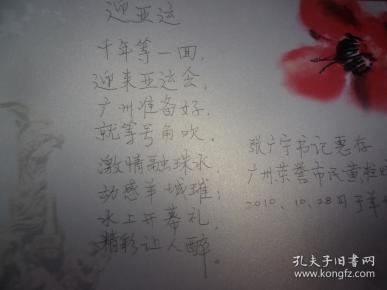 迎亚运
千年等一回，
迎来亚运会，
广州准备好，
就等号角吹，
激情融珠水，
动感羊城璀；
水上开幕礼，
精彩让人醉。
张广宁书记惠存
广州荣誉市民黄
2010.10.28日于羊
孔夫子旧书网
www.kongfz.com